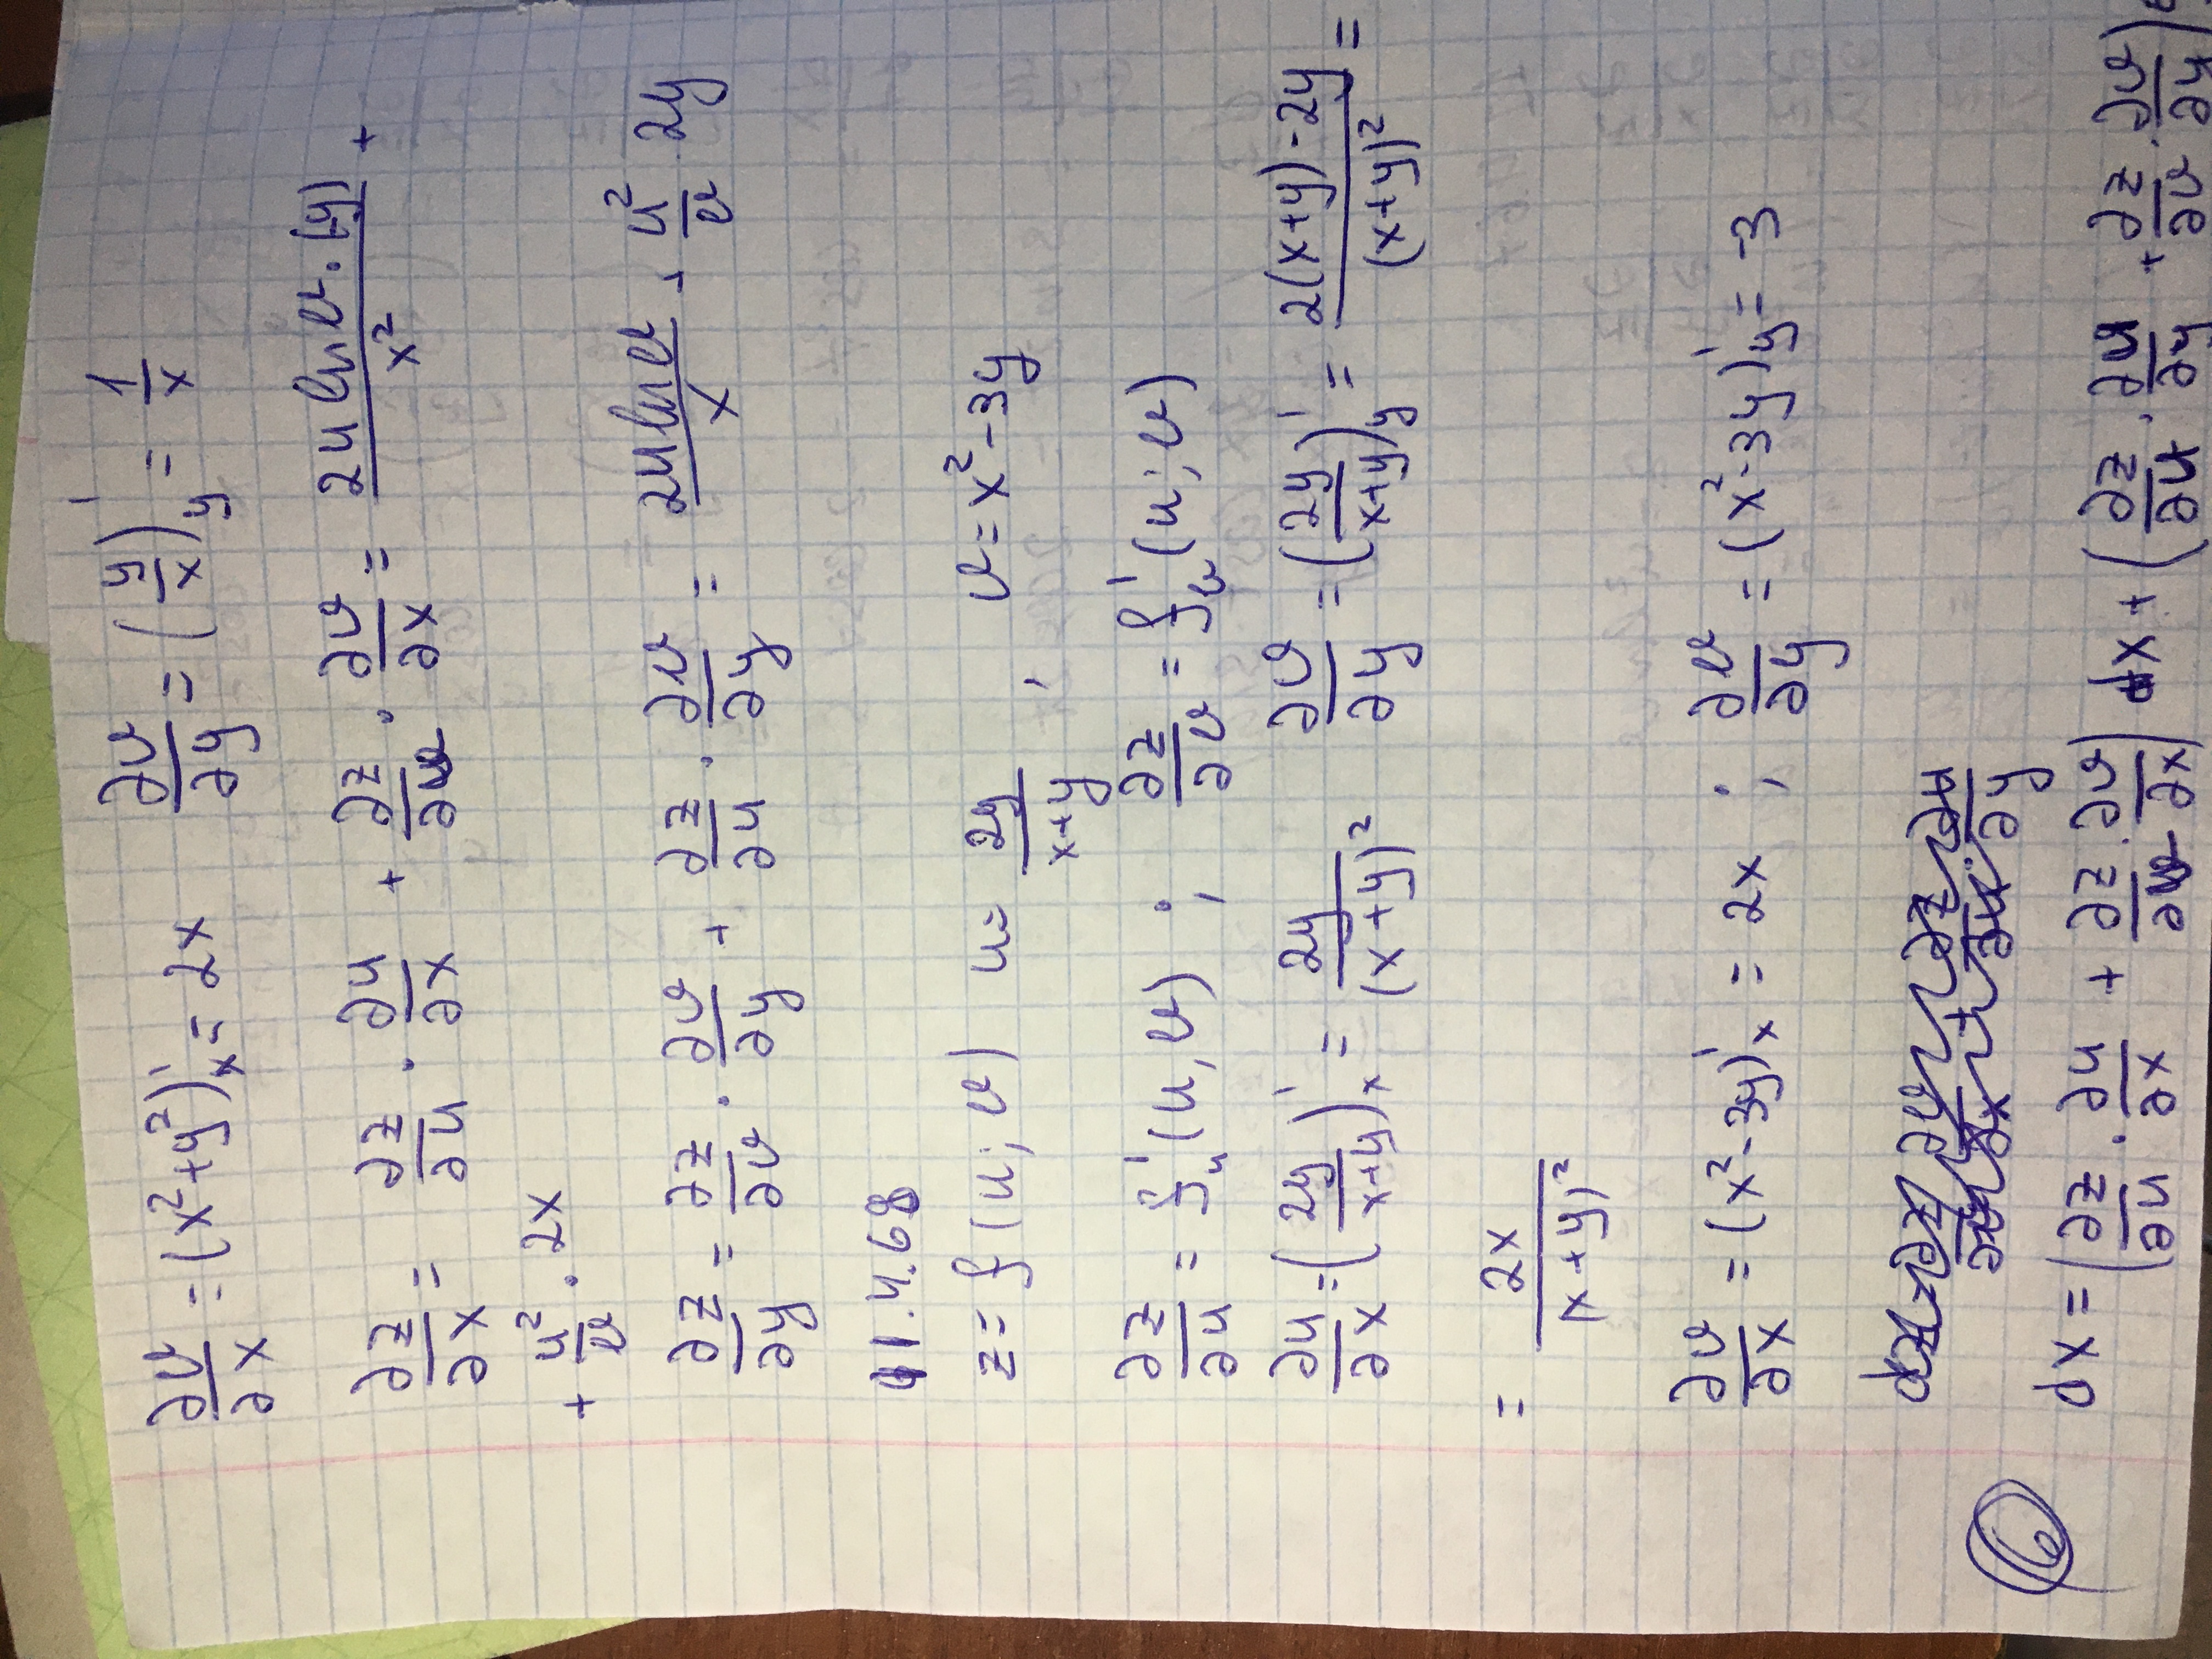 ∂v/∂x = (x²+y²)'ₓ = 2x ∂v/∂y = (y/x)'_y = 1/x
∂z/∂x = ∂z/∂u · ∂u/∂x + ∂z/∂v · ∂v/∂x = 2u ln v · (-y)/x² +
+ u²/v · 2x
∂z/∂y = ∂z/∂v · ∂v/∂y + ∂z/∂u · ∂v/∂y = 2u ln v/x + u²/v · 2y
11.4.68
z = f(u; v) u = 2y/(x+y) , v = x²-3y
∂z/∂u = f'_u(u, v) ; ∂z/∂v = f'_v(u; v)
∂u/∂x = (2y/(x+y))'ₓ = 2y/(x+y)² ∂v/∂y = (2y/(x+y))'_y = (2(x+y)-2y)/(x+y)² =
= 2x/(x+y)²
∂v/∂x = (x²-3y)'ₓ = 2x ; ∂v/∂y = (x²-3y)'_y = -3
dx = (∂z/∂u · ∂u/∂x + ∂z/∂v · ∂v/∂x) dx + (∂z/∂u · ∂u/∂y + ∂z/∂v · ∂v/∂y)